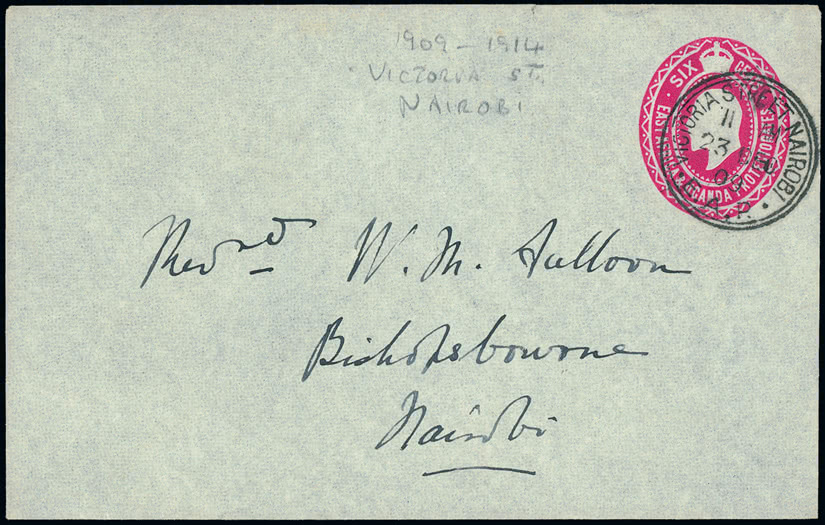 1909 – 1914
VICTORIA ST.
NAIROBI
SIX
EAST
UGANDA PROTECTORATES
VICTORIA STREET NAIROBI
11 AM
23 DE
09
E.A.P.
Revnd W. M. Falloon
Bishopsbourne
Nairobi